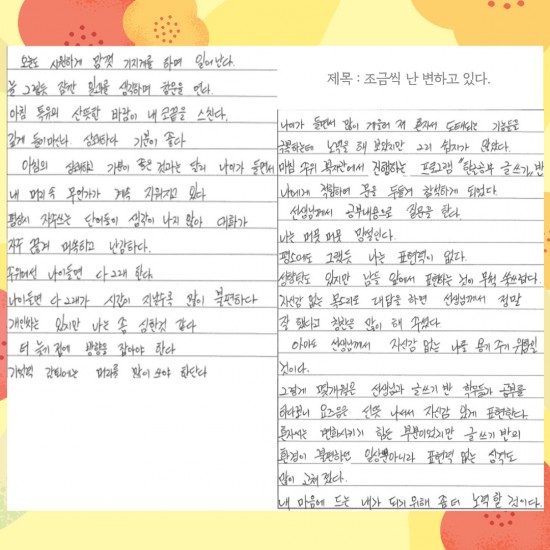 오늘도 시원하게 맘껏 기지개를 하며 일어난다.
늘 그렇듯 잠깐 일과를 생각하며 창문을 연다.
아침 특유의 산뜻한 바람이 내 코끝을 스친다.
깊게 들이마신다. 상쾌하다 기분이 좋다
아침의 상쾌하고 기분이 좋은 것과는 달리 나이가 들면서
내 머리 속 무언가가 계속 지워지고 있다
평상시 자주쓰는 단어들이 생각이 나지 않아 대화가
자주 끊겨 머쓱하고 난감하다.
주위에선 나이들면 다 그래 한다.
나이들면 다 그래가 시간이 지날수록 많이 불편하다
개인차는 있지만 나는 좀 심한것 같다
더 늦기 전에 방향을 잡아야 한다
기억력 감퇴에는 머리를 많이 쓰야 한단다
제목 : 조금씩 난 변하고 있다.
나이가 들면서 많이 게을러 져 혼자서 도태되는 기능들을
극복하는데 노력을 해 보았지만 그리 쉽지가 않았다.
마침 수위 복지관에서 진행하는 프로그램 "학습승부 글쓰기"반
나에게 적합하여 문을 두들겨 참석하게 되었다.
선생님께서 공부내용으로 질문를 한다.
나는 머뭇 머뭇 망설인다.
평소에도 그랬듯 나는 표현력이 없다.
성향탓도 있지만 남들 앞에서 표현하는 것이 무척 쑥쓰럽다.
자신감 없는 목소리로 대답을 하면 선생님께서 정말
잘 했다고 칭찬을 많이 해 주셨다.
아마도 선생님께서 자신감 없는 나를 용기 주기 위함일
것이다.
그렇게 몇개월을 선생님과 글쓰기 반 학우들과 공부를
하다보니 요즈음은 선뜻 나서서 자신감 있게 표현한다.
혼자서는 변화시키기 힘든 부분이었지만 글쓰기 반의
환경이 불편하던 일상뿐아니라 표현력 없는 성격도
많이 고쳐 졌다.
내 마음에 드는 내가 되기 위해 좀 더 노력할 것이다.